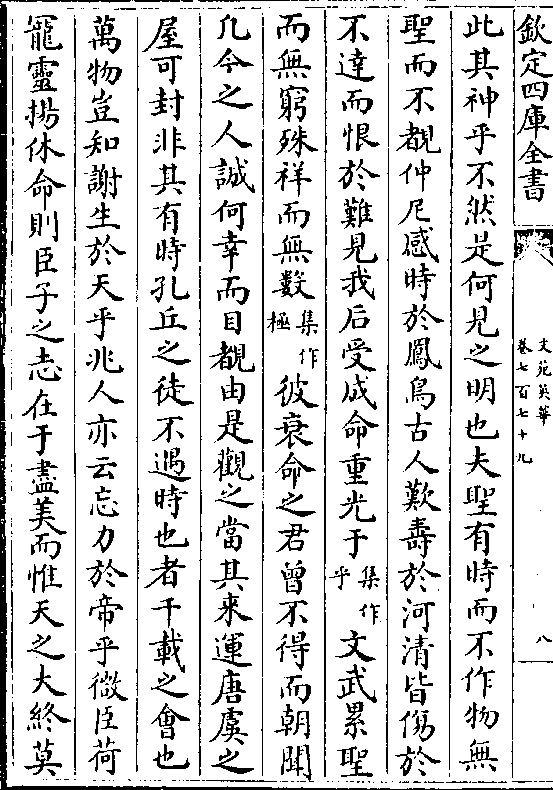 欽定四庫全書
文苑英華
卷七百七十九
八
此其神乎不然是何見之明也夫聖有時而不作物無
聖而不覩仲尼感時於鳳鳥古人歎壽於河清皆傷於
不達而恨於難見我后受成命重光于集作乎文武累聖
而無窮殊祥而無數集作極彼衰命之君曾不得而朝聞
凡今之人誠何幸而目覩由是觀之當其來運唐虞之
屋可封非其有時孔丘之徒不遇時也者千載之會也
萬物豈知謝生於天乎兆人亦云忘力於帝乎微臣荷
寵靈揚休命則臣子之志在于盡美而惟天之大終莫